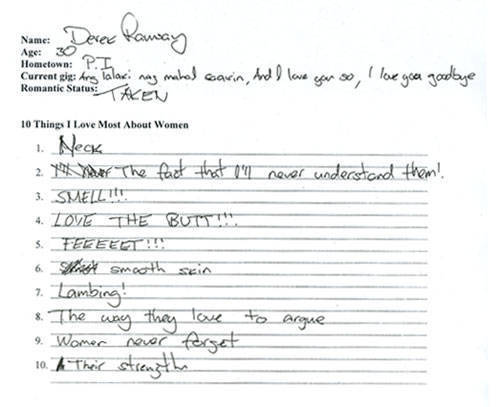 Name: Derek Ramsay
Age: 30
Hometown: P.I
Current gig: Ang lalaki nag mahal And I love you so, I love you goodbye
Romantic Status: TAKEN
10 Things I Love Most About Women
1. Neck
2. The fact that I'll never understand them!
3. SMELL!!!
4. LOVE THE BUTT!!!
5. FEEEEET!!!
6. smooth skin
7. Lambing!
8. The way they love to argue
9. Women never forget
10. Their strength